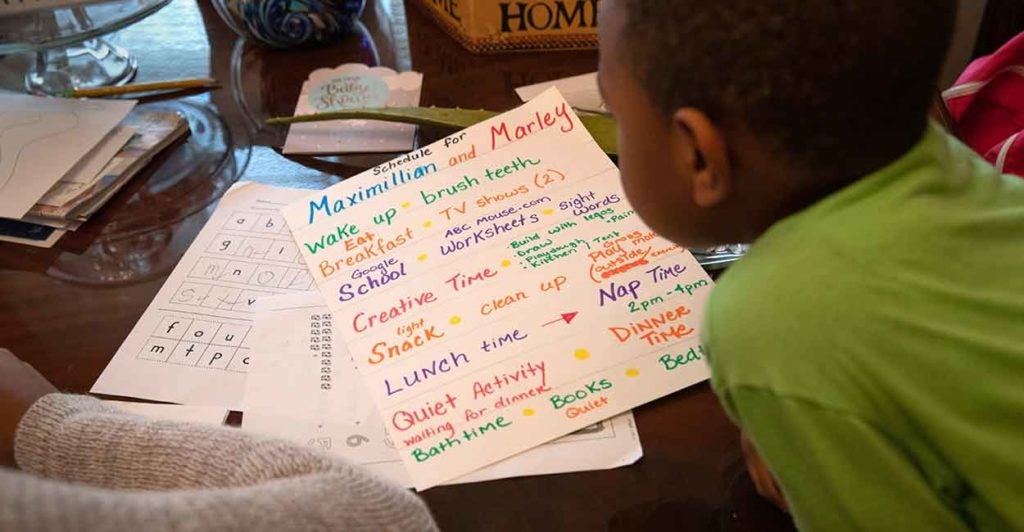 HOME
Baby
Shower
Schedule for
Maximillian and Marley
Wake up • brush teeth
Eat
Breakfast • TV shows (2)
Google ABC mouse.com
School • Worksheets • Sight Words
Creative Time • Build with legos
• Draw
• Playdough
• Kitchen
light
Snack • clean up
Play
outside
LUNCH time → Nap Time
2pm - 4pm
Quiet Activity • DINNER TIME
waiting for dinner
Bathtime • BOOKS • Bed
Quiet
a b
g h
m n o
s t u v
f o u
m t p c
6